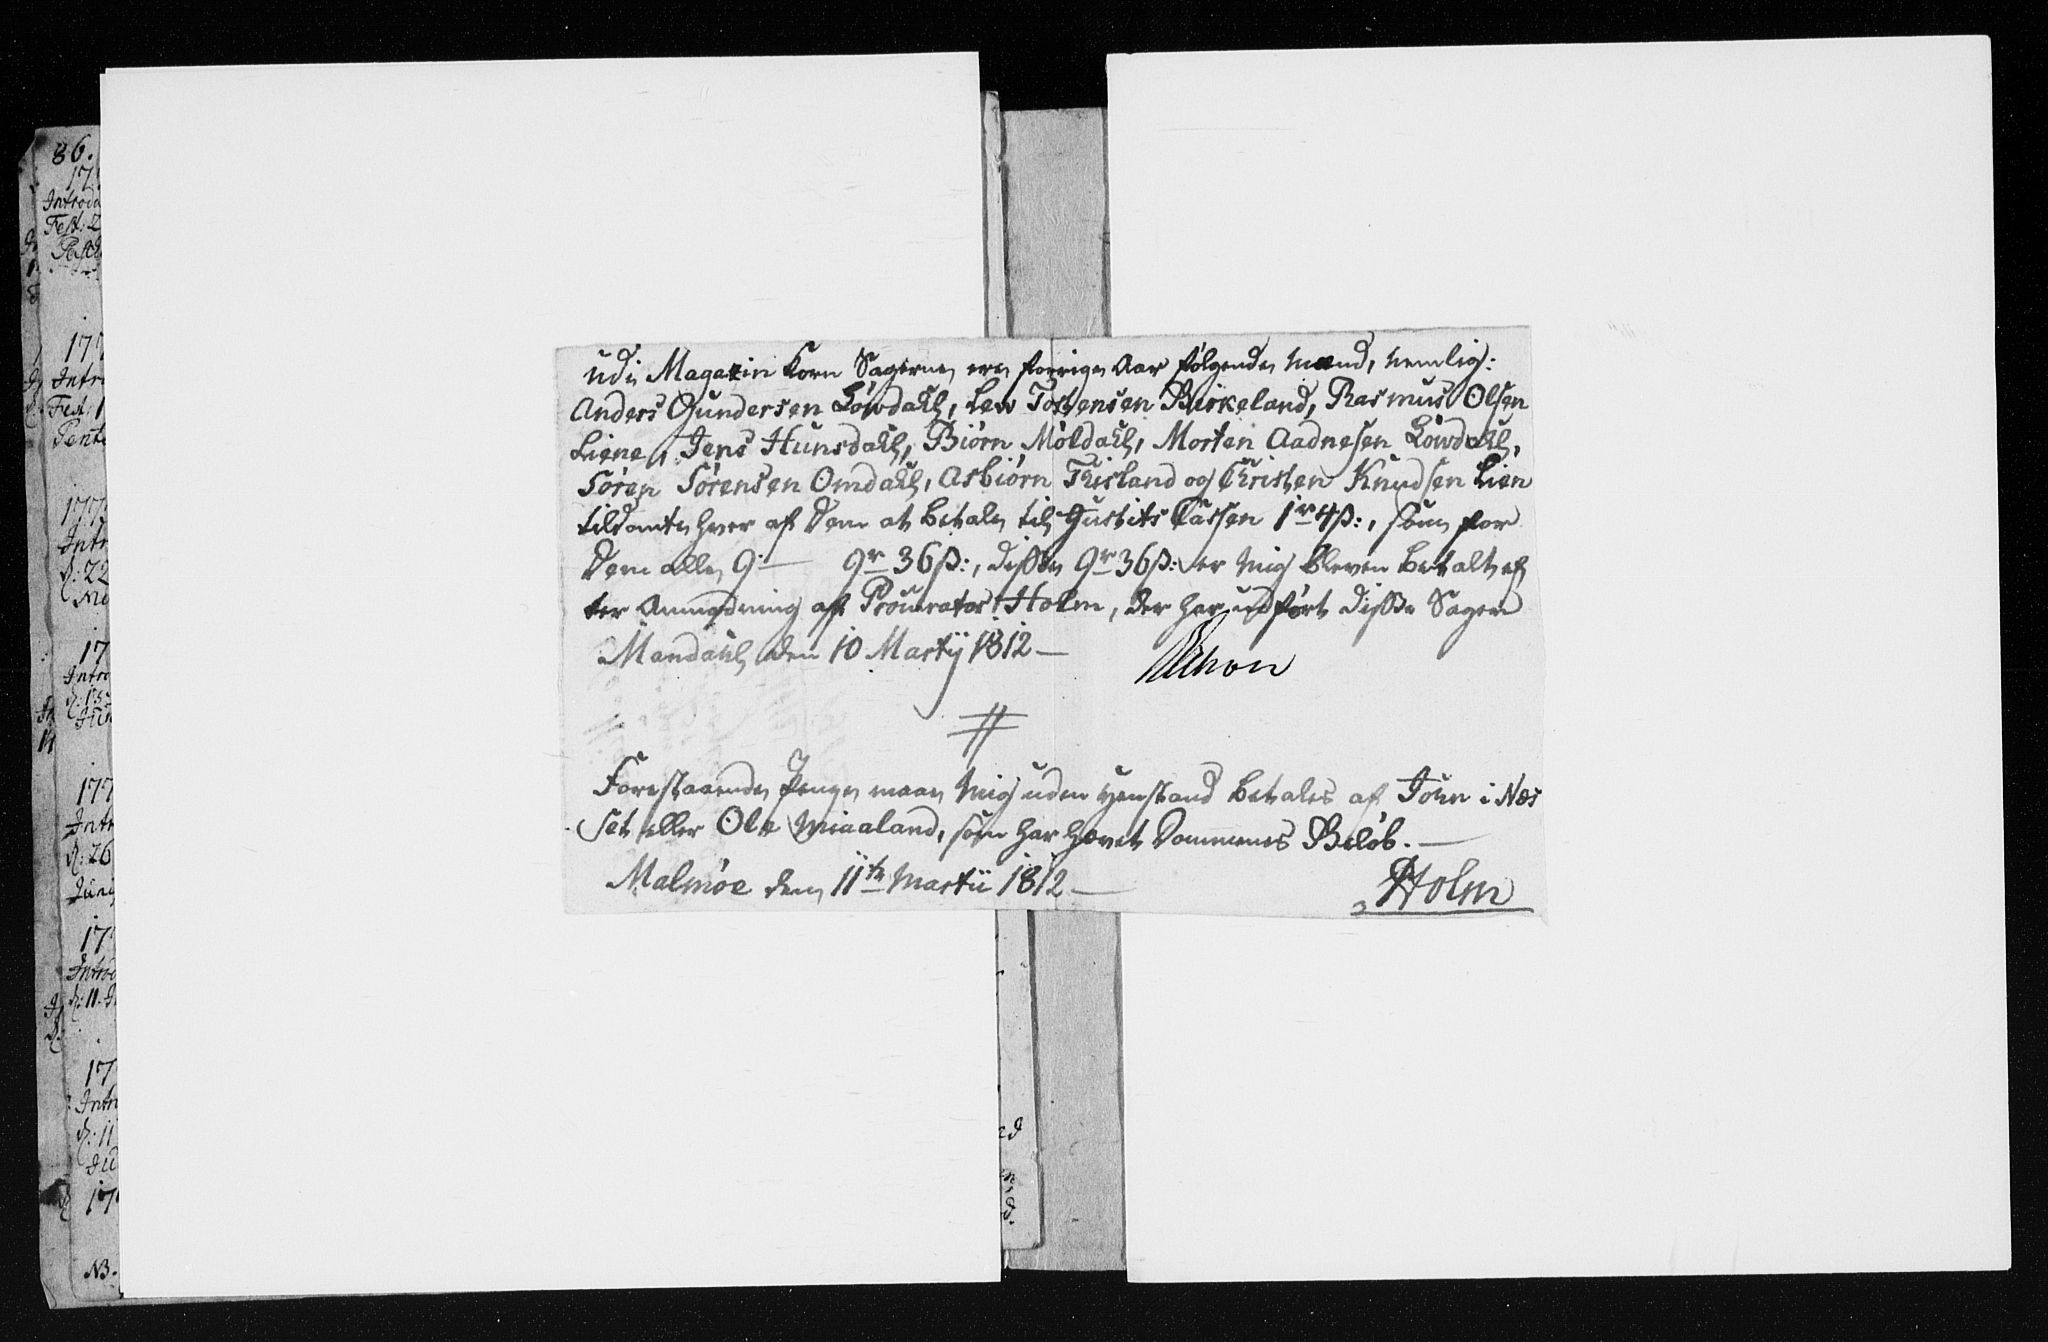 udi Magazin Korn Sagerne ere forrige Aar følgende Mænd, nemlig:
Anders Gundersen Løwdahl, Lew Tostensen Birkeland, Rasmus Olsen
Liene, Jens Hunsdahl, Biørn Møldahl, Morten Aadnesen Løwdahl,
Søren Sørensen Omdahl, Asbiørn Thisland og Christen Knudsen Lien
tildømte hver af Dem at betale til Justits Cassen 1r 4ß:, som for
Dem alle 9 — 9r 36ß:, disse 9r 36ß: er mig bleven betalt ef
ter Anmodning af Procurator Holm, der har udført disse Sager
Mandahl den 10 Martij 1812 —
Forestaaende Penge maae mig uden Henstand betales af John i Næs
set eller Ole Miaaland, som har hævet Dommenes Beløb. —
Malmøe den 11te Martii 1812 —
Holm
86.
17
Introd
Fest: 2
177
Intr
Fest: 1
Pente
177
Intr
d: 22
17
Intro
177
Intr
d: 26
Juni
17
Introd
d: 11.
17
Intr
d: 11
17
NB.